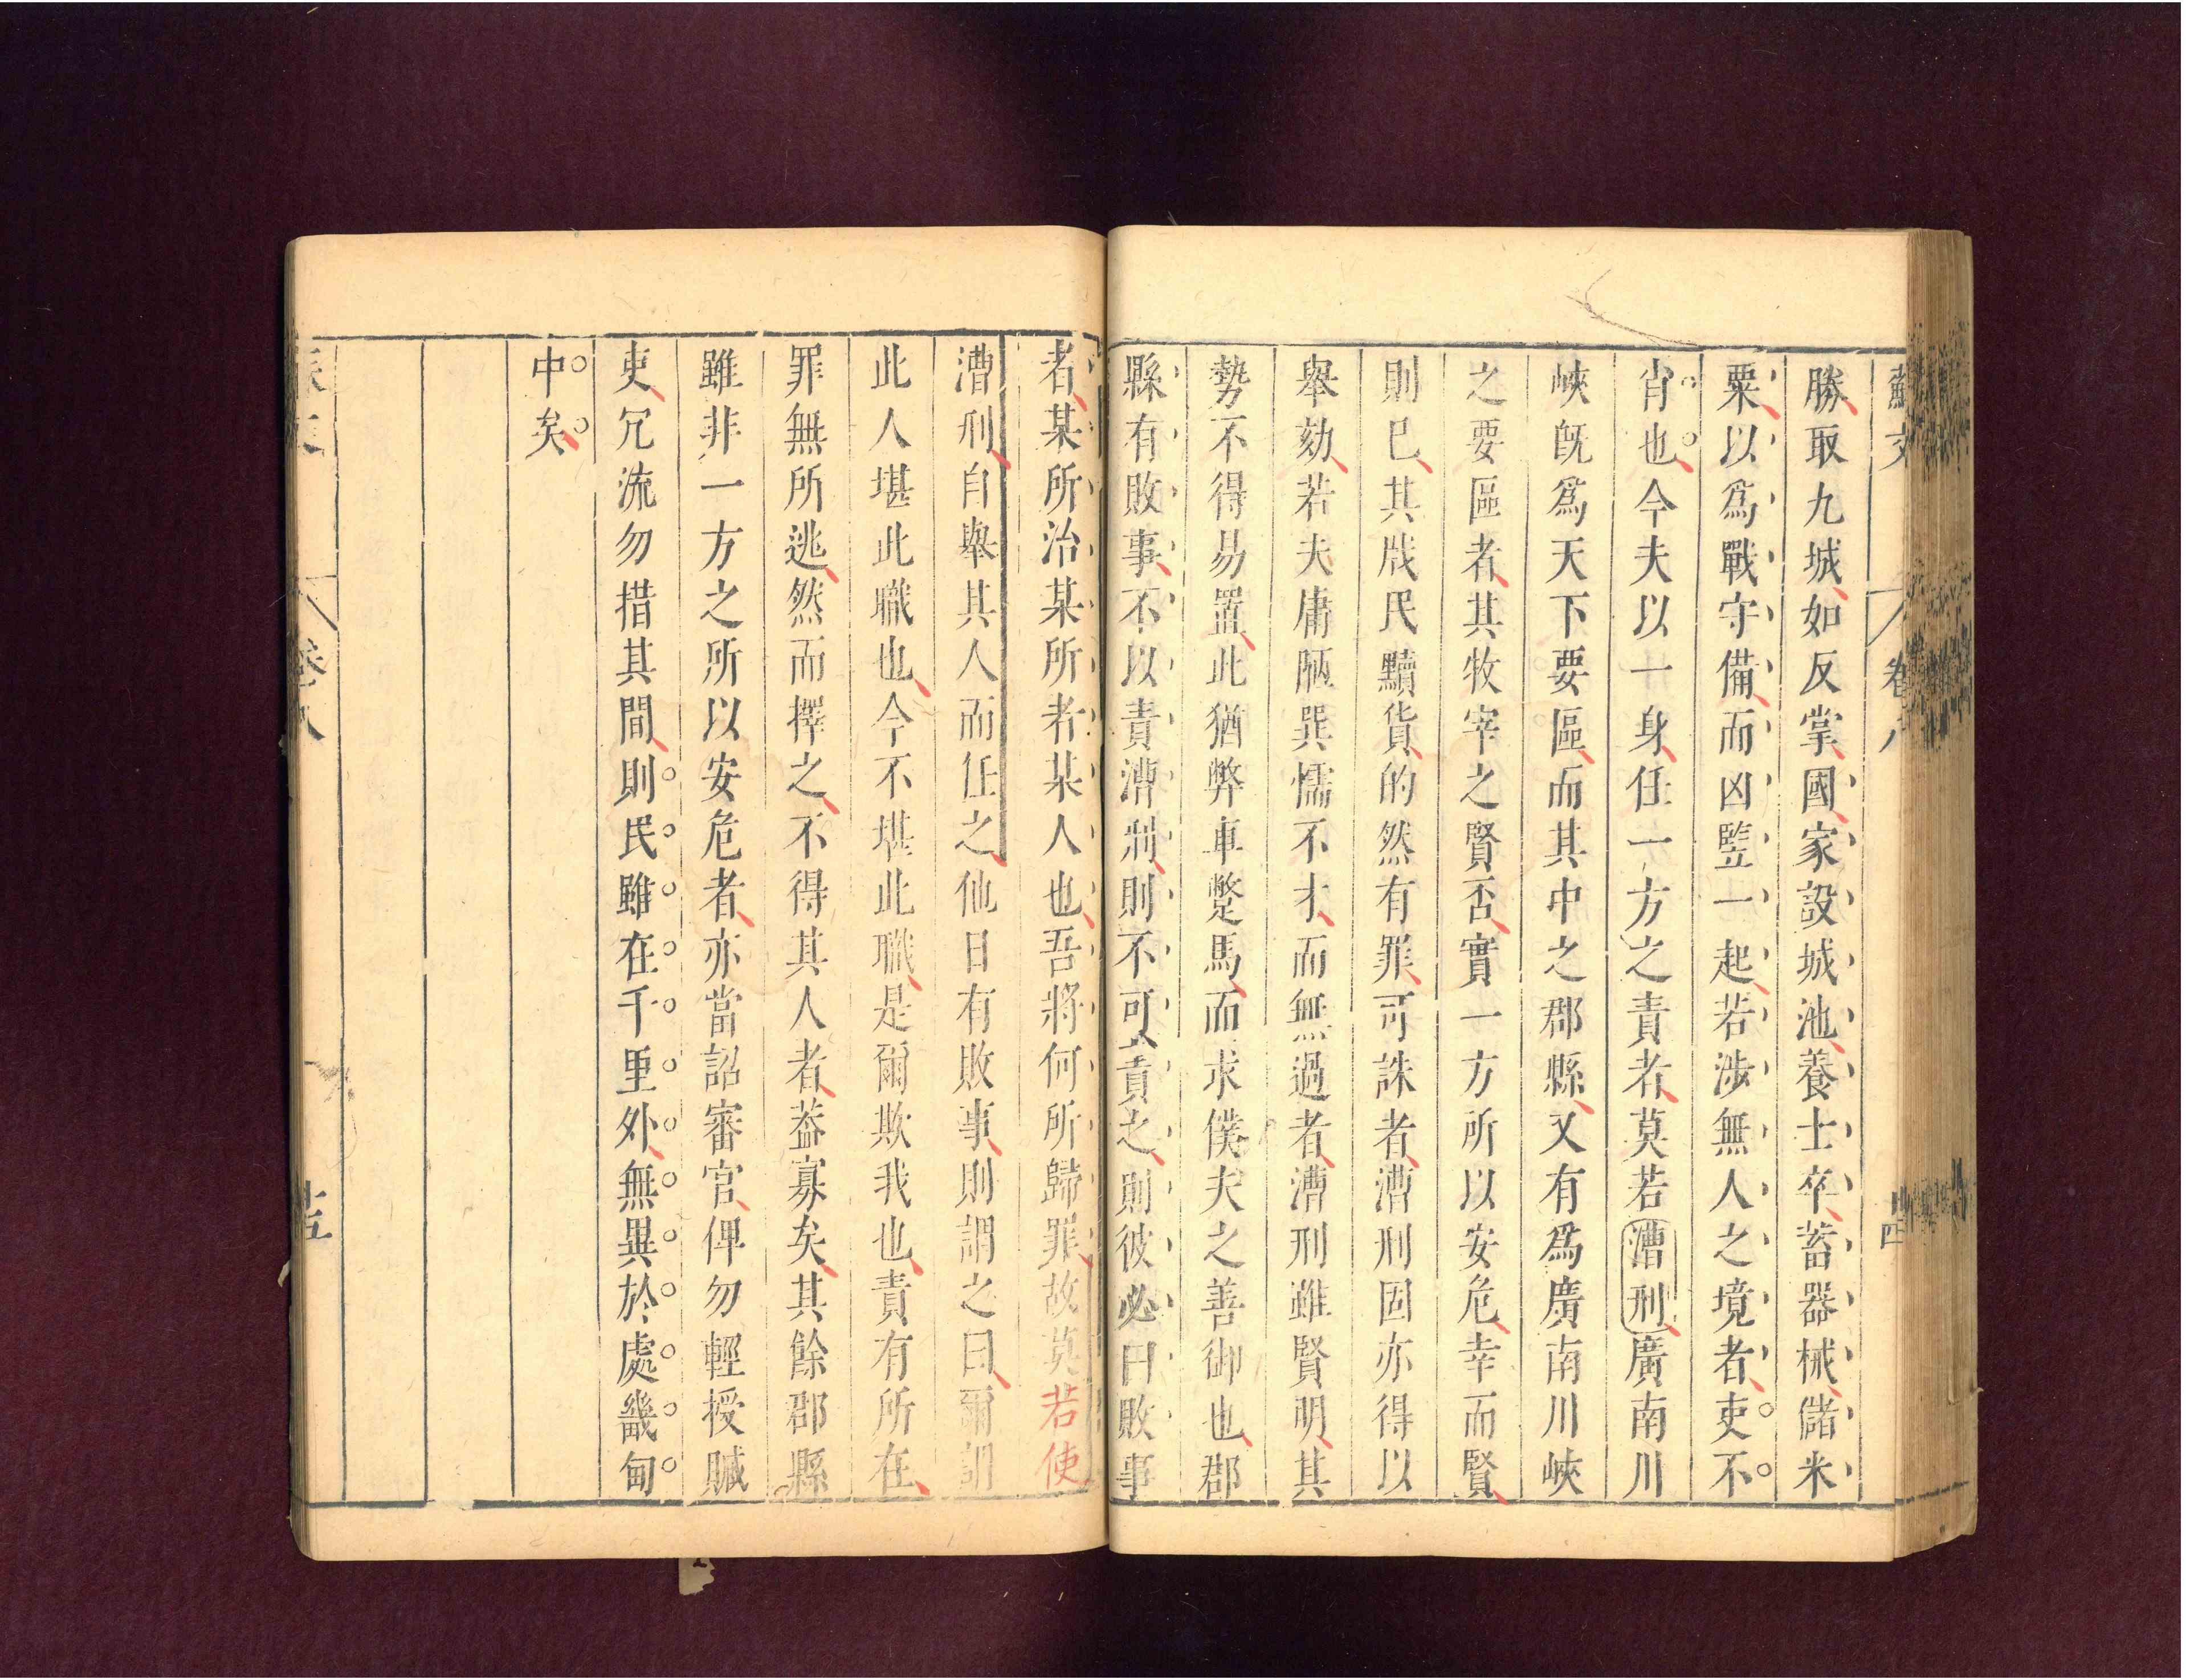 蘇文 卷八 十四
勝取九城如反掌國家設城池養士卒蓄器械儲米
粟以爲戰守備而凶豎一起若涉無人之境者吏不
肖也今夫以一身任一方之責者莫若漕刑廣南川
峽既爲天下要區而其中之郡縣又有爲廣南川峽
之要區者其牧宰之賢否實一方所以安危幸而賢
則已其戕民黷貨的然有罪可誅者漕刑固亦得以
舉劾若夫庸陋巽懦不才而無過者漕刑雖賢明其
勢不得易置此猶弊車躄馬而求僕夫之善御也郡
縣有敗事不以責漕刑則不可責之則彼必曰敗事
者某所治某所者某人也吾將何所歸罪故莫若使
漕刑自舉其人而任之他日有敗事則謂之曰爾謂
此人堪此職也今不堪此職是爾欺我也責有所在
罪無所逃然而擇之不得其人者葢寡矣其餘郡縣
雖非一方之所以安危者亦當詔審官俾勿輕授贓
吏冗流勿措其間則民雖在千里外無異於處畿甸
中矣
卷八 十五